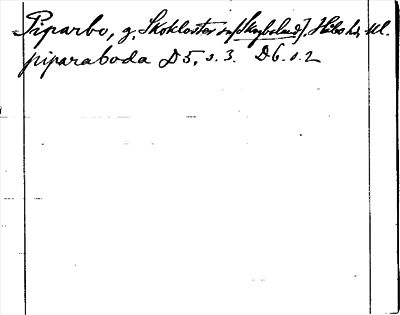 Piparbo, g. Skokloster sn [Skogbolund], Håbo hd, Upl.
piparaboda D5, s. 3. D6. s. 2